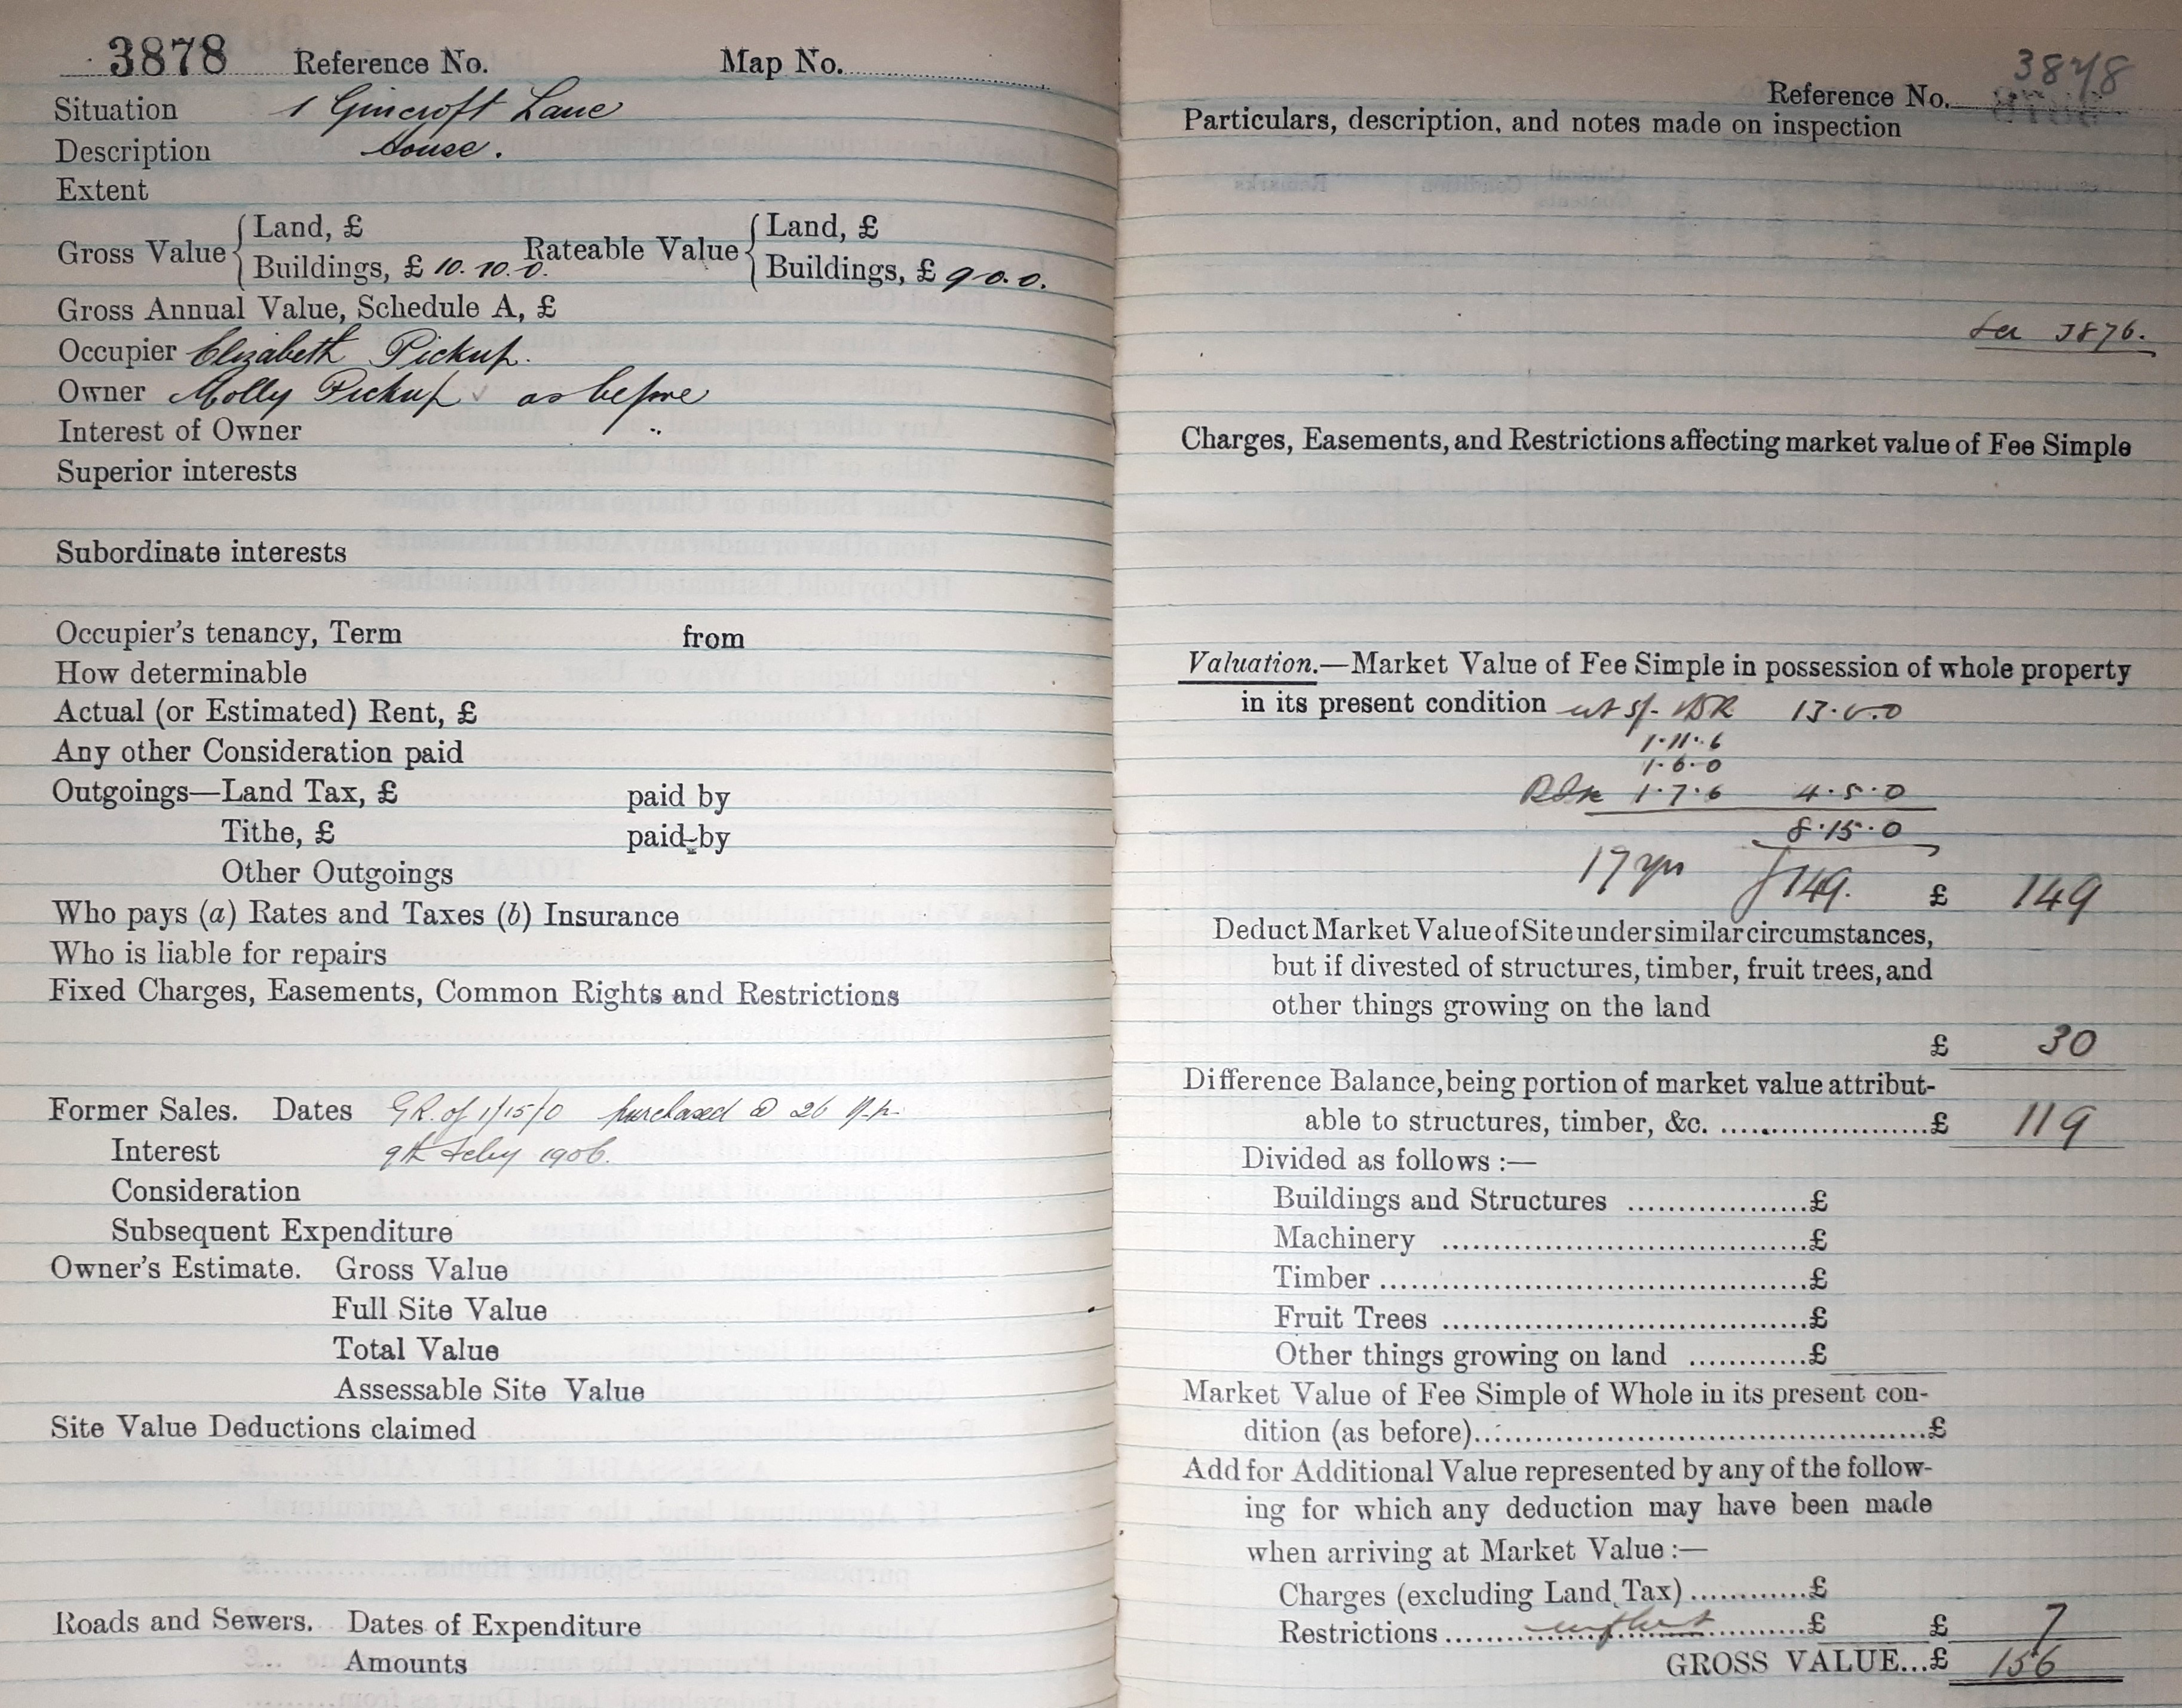 3878 Reference No. Map No.
Situation 1 Gincroft Lane
Description House.
Extent
Gross Value { Land, £ Rateable Value { Land, £
Buildings, £ 10. 10. 0. Buildings, £ 9 0. 0.
Gross Annual Value, Schedule A, £
Occupier Elizabeth Pickup.
Owner Molly Pickup ✓ as before
Interest of Owner "
Superior interests
Subordinate interests
Occupier's tenancy, Term from
How determinable
Actual (or Estimated) Rent, £
Any other Consideration paid
Outgoings—Land Tax, £ paid by
Tithe, £ paid by
Other Outgoings
Who pays (a) Rates and Taxes (b) Insurance
Who is liable for repairs
Fixed Charges, Easements, Common Rights and Restrictions
Former Sales. Dates G.R. of 1/15/0 purchased @ 26 y.p.
Interest 9th Feby 1906.
Consideration
Subsequent Expenditure
Owner's Estimate. Gross Value
Full Site Value
Total Value
Assessable Site Value
Site Value Deductions claimed
Roads and Sewers. Dates of Expenditure
Amounts
3878
Reference No.
Particulars, description, and notes made on inspection
See 3876.
Charges, Easements, and Restrictions affecting market value of Fee Simple
Valuation.—Market Value of Fee Simple in possession of whole property
in its present condition at 5/- 13.0.0
1.11.6
1.6.0
1.7.6 4.5.0
8.15.0
17 yrs £149. £ 149
Deduct Market Value of Site under similar circumstances,
but if divested of structures, timber, fruit trees, and
other things growing on the land
£ 30
Difference Balance, being portion of market value attribut-
able to structures, timber, &c. ....................£ 119
Divided as follows :—
Buildings and Structures ..................£
Machinery ....................................£
Timber ..........................................£
Fruit Trees ....................................£
Other things growing on land ............£
Market Value of Fee Simple of Whole in its present con-
dition (as before)..............................................£
Add for Additional Value represented by any of the follow-
ing for which any deduction may have been made
when arriving at Market Value :—
Charges (excluding Land Tax) ............£
Restrictions ..............................£ £ 7
GROSS VALUE...£ 156